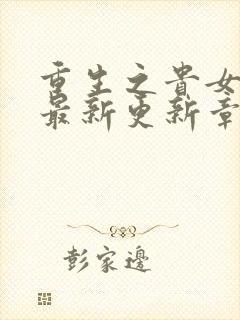 重生之貴女
最新更新章
彭家邊